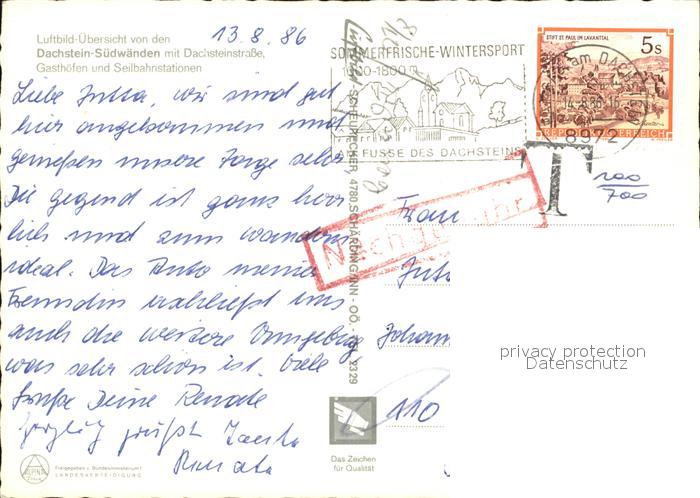 Luftbild-Übersicht von den
Dachstein-Südwänden mit Dachsteinstraße,
Gasthöfen und Seilbahnstationen
13.8.86
Liebe Jutta, wir sind gut
hier angekommen und
genießen unsere Tage sehr.
Die Gegend ist ganz herr
lich und zum wandern
ideal. Das Auto meiner
Freundin erschließt uns
auch die weitere Umgebung
was sehr schön ist. Viele
Grüße Deine Renate
Herzlich grüßt
Renata
Freigegeben v. Bundesministerium f.
LANDESVERTEIDIGUNG
SCHÄRDING/INN - OÖ.
SOMMERFRISCHE-WINTERSPORT
FUSSE DES DACHSTEINS
STIFT ST. PAUL IM LAVANTTAL
5s
REPUBLIK ÖSTERREICH
am DACH
14.8.86-16
8972
T
200
700
Nachgebühr
Frau
Jutt
Johann
Das Zeichen
für Qualität
privacy protection
Datenschutz